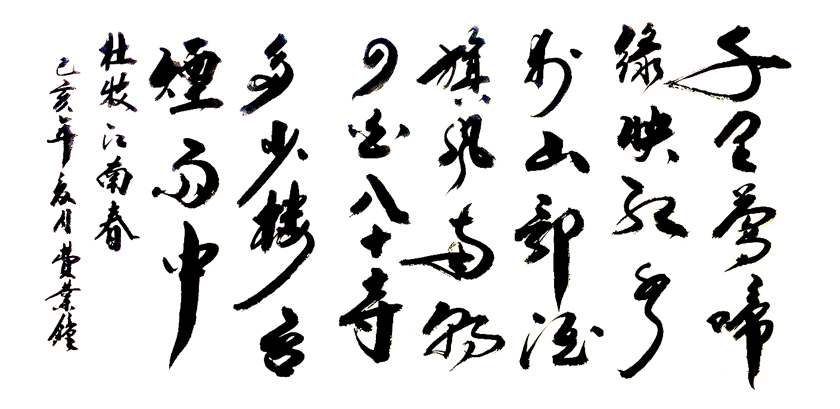 千里莺啼
绿映红水
村山郭酒
旗风南朝
四百八十寺
多少楼台
煙雨中
杜牧江南春
己亥年夏月費業鐘